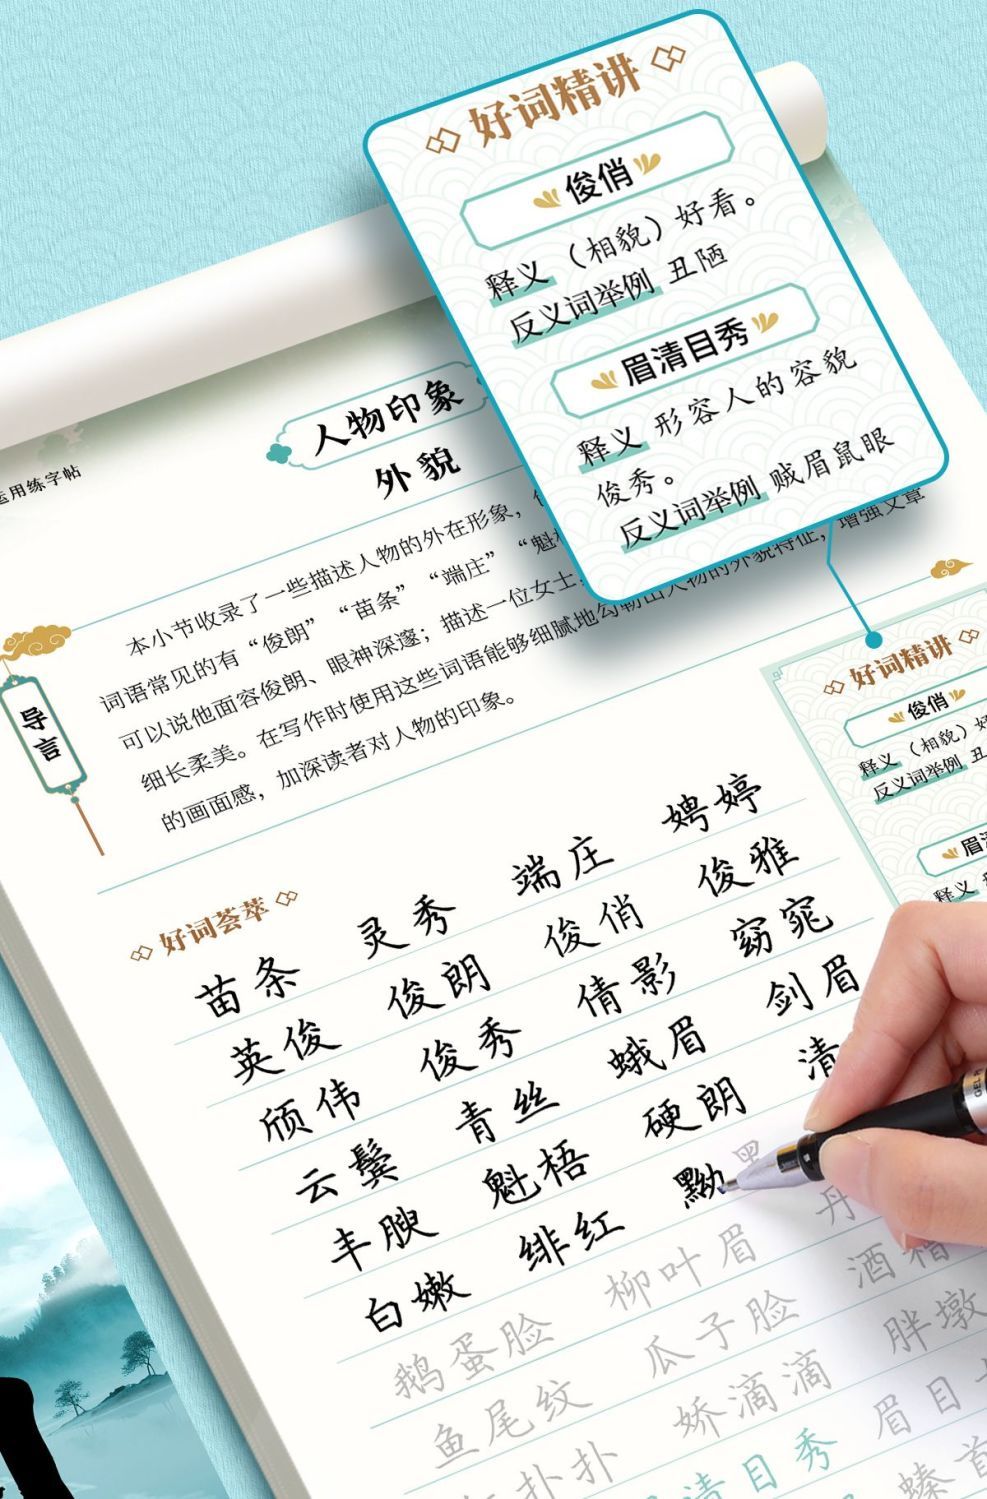 好词精讲
俊俏
释义（相貌）好看。
反义词举例 丑陋
眉清目秀
释义 形容人的容貌
俊秀。
反义词举例 贼眉鼠眼
运用练字帖
人物印象
外貌
导言
本小节收录了一些描述人物的外在形象，
词语常见的有“俊朗”“苗条”“端庄”“魁
可以说他面容俊朗、眼神深邃；描述一位女士，
增强文章
细长柔美。在写作时使用这些词语能够细腻地勾勒出人物的外貌特征，
的画面感，加深读者对人物的印象。
好词荟萃
苗条 灵秀 端庄 娉婷
英俊 俊朗 俊俏 俊雅
颀伟 俊秀 倩影 窈窕
云鬓 青丝 蛾眉 剑眉
丰腴 魁梧 硬朗 清
白嫩 绯红 黝黑 丹
鹅蛋脸 柳叶眉 酒糟
鱼尾纹 瓜子脸 胖墩
扑扑 娇滴滴 眉目
清目秀 螓首
好词精讲
俊俏
释义（相貌）好
反义词举例 丑
眉清
释义